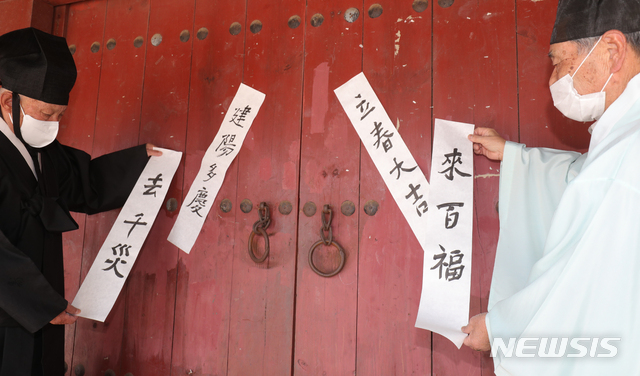 立春大吉
建陽多慶
來百福
去千災
NEWSIS